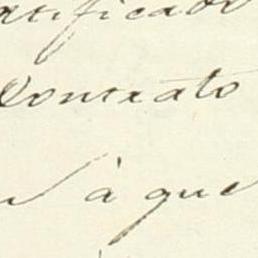 atificado
Contrato
à que